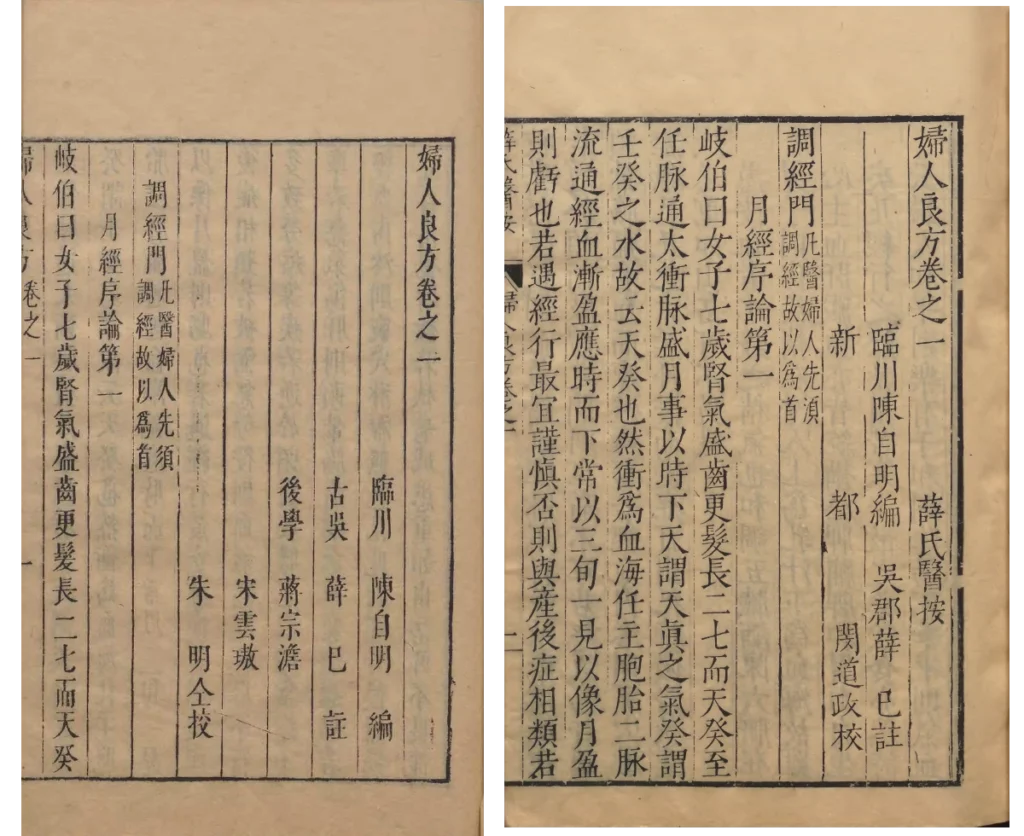 婦人良方卷之一
臨川 陳自明 編
古吳 薛 已 註
後學 蔣宗澹
宋雲璈
朱 明仝挍
調經門 凡醫婦人先須
調經故以爲首
月經序論第一
岐伯曰女子七歲腎氣盛齒更髮長二七而天癸
婦人良方 卷之一 一
婦人良方卷之一 薛氏醫按
臨川陳自明編 吳郡薛 已註
新 都 閔道政校
調經門 凡醫婦人先湏
調經故以爲首
月經序論第一
岐伯曰女子七歲腎氣盛齒更髮長二七而天癸至
任脉通太衝脉盛月事以時下天謂天眞之氣癸謂
壬癸之水故云天癸也然衝爲血海任主胞胎二脉
流通經血漸盈應時而下常以三旬一見以像月盈
則虧也若遇經行最宜謹慎否則與產後症相類若
薛氏醫按 婦人良方卷之一 一